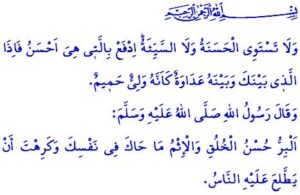 بِسْمِ اللهِ الرَّحْمٰنِ الرَّحِيمِ
وَلَا تَسْتَوِى الْحَسَنَةُ وَلَا السَّيِّئَةُ اِدْفَعْ بِالَّتٖى هِىَ اَحْسَنُ فَاِذَا
الَّذٖى بَيْنَكَ وَبَيْنَهُ عَدَاوَةٌ كَاَنَّهُ وَلِىٌّ حَمٖيمٌ.
وَقَالَ رَسُولُ اللهِ صَلَّى اللهُ عَلَيْهِ وَسَلَّمَ:
اَلْبِرُّ حُسْنُ الْخُلُقِ وَالْاِثْمُ مَا حَاكَ فٖى نَفْسِكَ وَكَرِهْتَ اَنْ
يَطَّلِعَ عَلَيْهِ النَّاسُ.